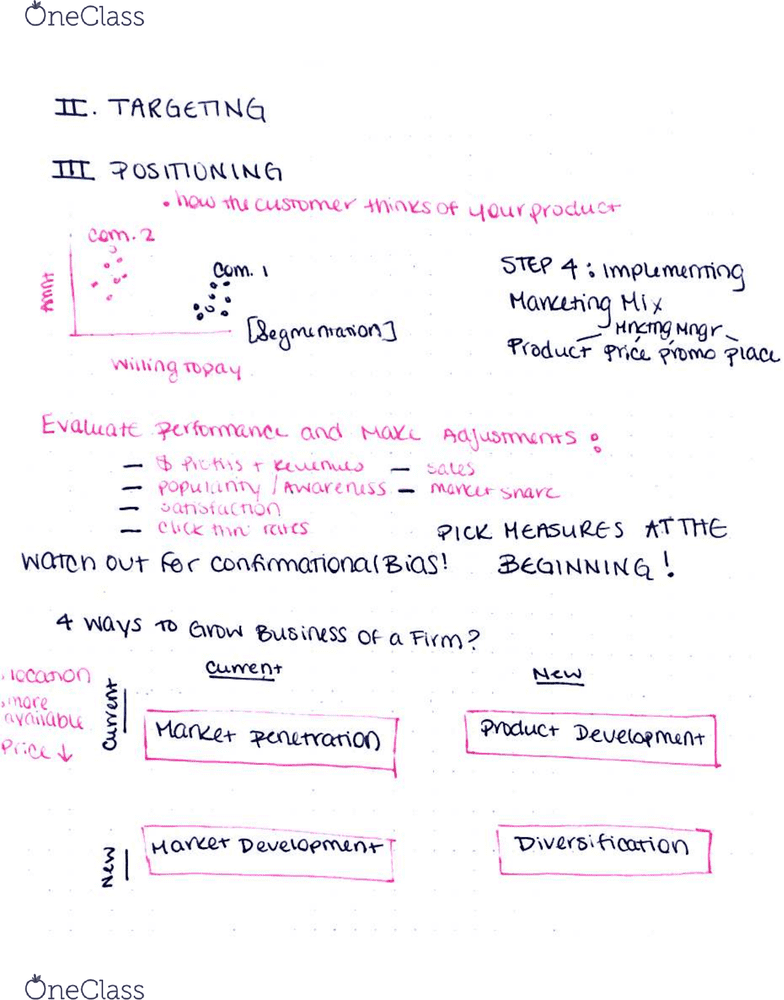 OneClass
II. TARGETING
III POSITIONING
• how the customer thinks of your product
com. 2
com. 1
[Segmentation]
Willing to pay
STEP 4: Implementing
Marketing Mix
Mrkting Mngr
Product price promo place
Evaluate performance and Make Adjustments:
— $ Profits + Revenues — sales
— popularity / Awareness — market share
— satisfaction
— click thru rates
PICK MEASURES AT THE
BEGINNING!
Watch out for confirmational Bias!
4 Ways to Grow Business of a Firm?
Current
New
• location
• more
available
Price ↓
Current
Market penetration
Product Development
New
Market Development
Diversification
OneClass